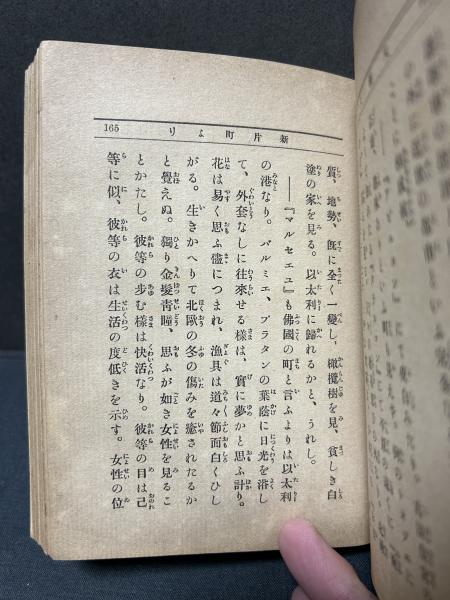 165
新片町より
質、地勢、既に全く一變し、橄欖樹を見、貧しき白
塗の家を見る。以太利に歸れるかと、うれし。
――『マルセエユ』も佛國の町と言ふよりは以太利
の港なり。パルミエ、プラタンの葉蔭に日光を浴し
て、外套なしに往來せる樣は、實に夢かと思ふ計り。
花は易く思ふ儘につまれ、漁具は道々節面白くひし
がる。生きかへりて北歐の冬の傷みを癒されたるか
と覺えぬ。獨り金髮靑瞳、思ふが如き女性を見るこ
とかたし。彼等の步む樣は快活なり。彼等の目は己
等に似、彼等の衣は生活の度低きを示す。女性の位